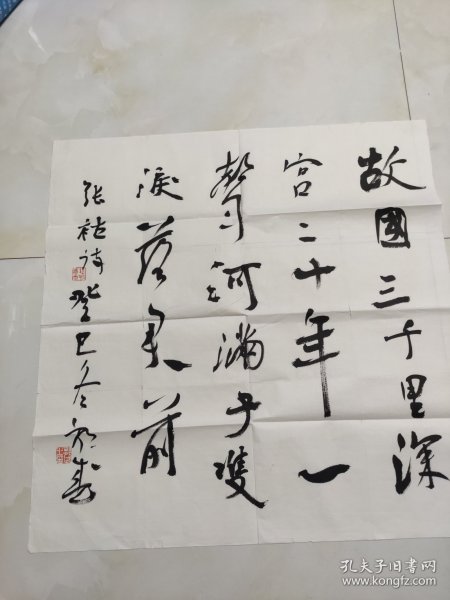 故國三千里深
宮二十年一
聲河滿子雙
淚落君前
張祜诗癸巳冬
孔夫子旧书网
www.kongfz.com